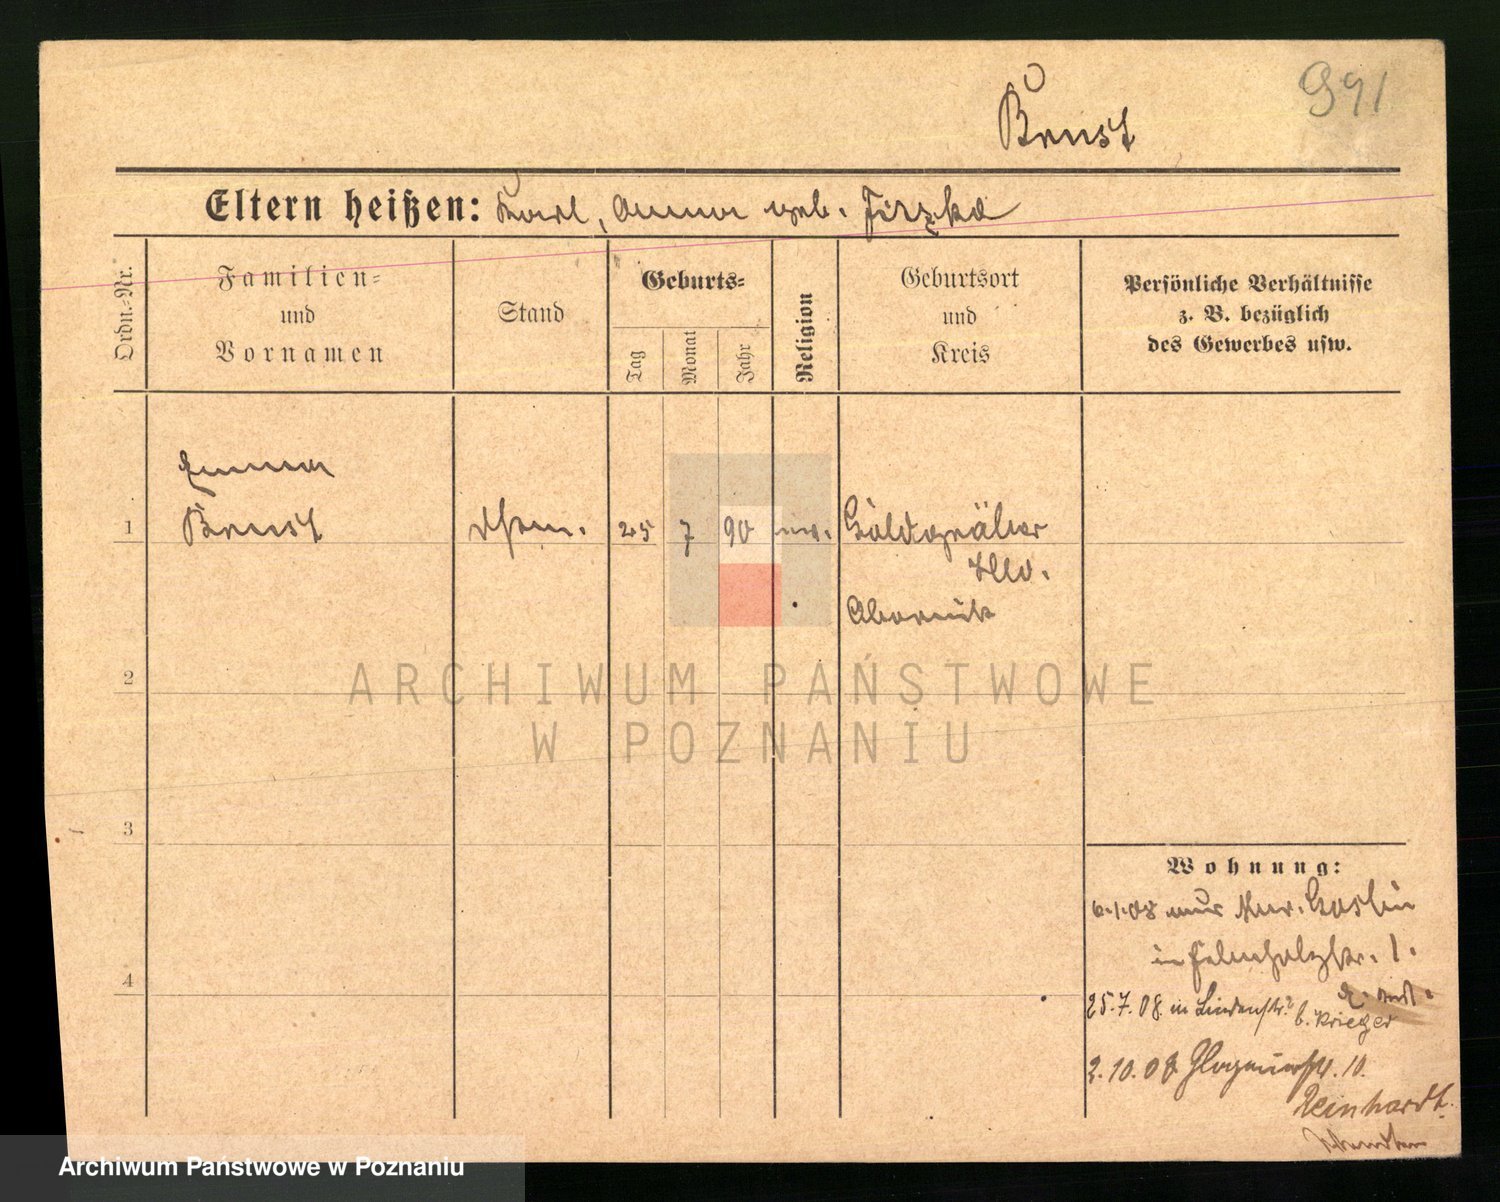 991
Brust
Eltern heißen: Karl, Anna geb. Jirzka
Ordn.-Nr.
Familien-
und
Vornamen
Stand
Geburts-
Tag
Monat
Jahr
Religion
Geburtsort
und
Kreis
Persönliche Verhältnisse
z. B. bezüglich
des Gewerbes usw.
Emma
1 Brust 25 7 90 ev. Goldgräber
Hld.
Obornik
2
3
4
Wohnung:
6.1.08 aus Mur. Goslin
in
25.7.08 in Lindenstr. b. Krieger
2.10.08 Glogauerstr. 10.
Reinhardt
ARCHIWUM PAŃSTWOWE
W POZNANIU
Archiwum Państwowe w Poznaniu